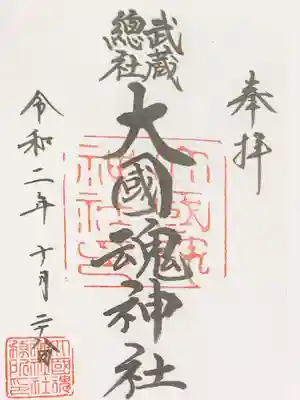 奉拝
武蔵
總社
大國魂神社
令和二年十月二十八日